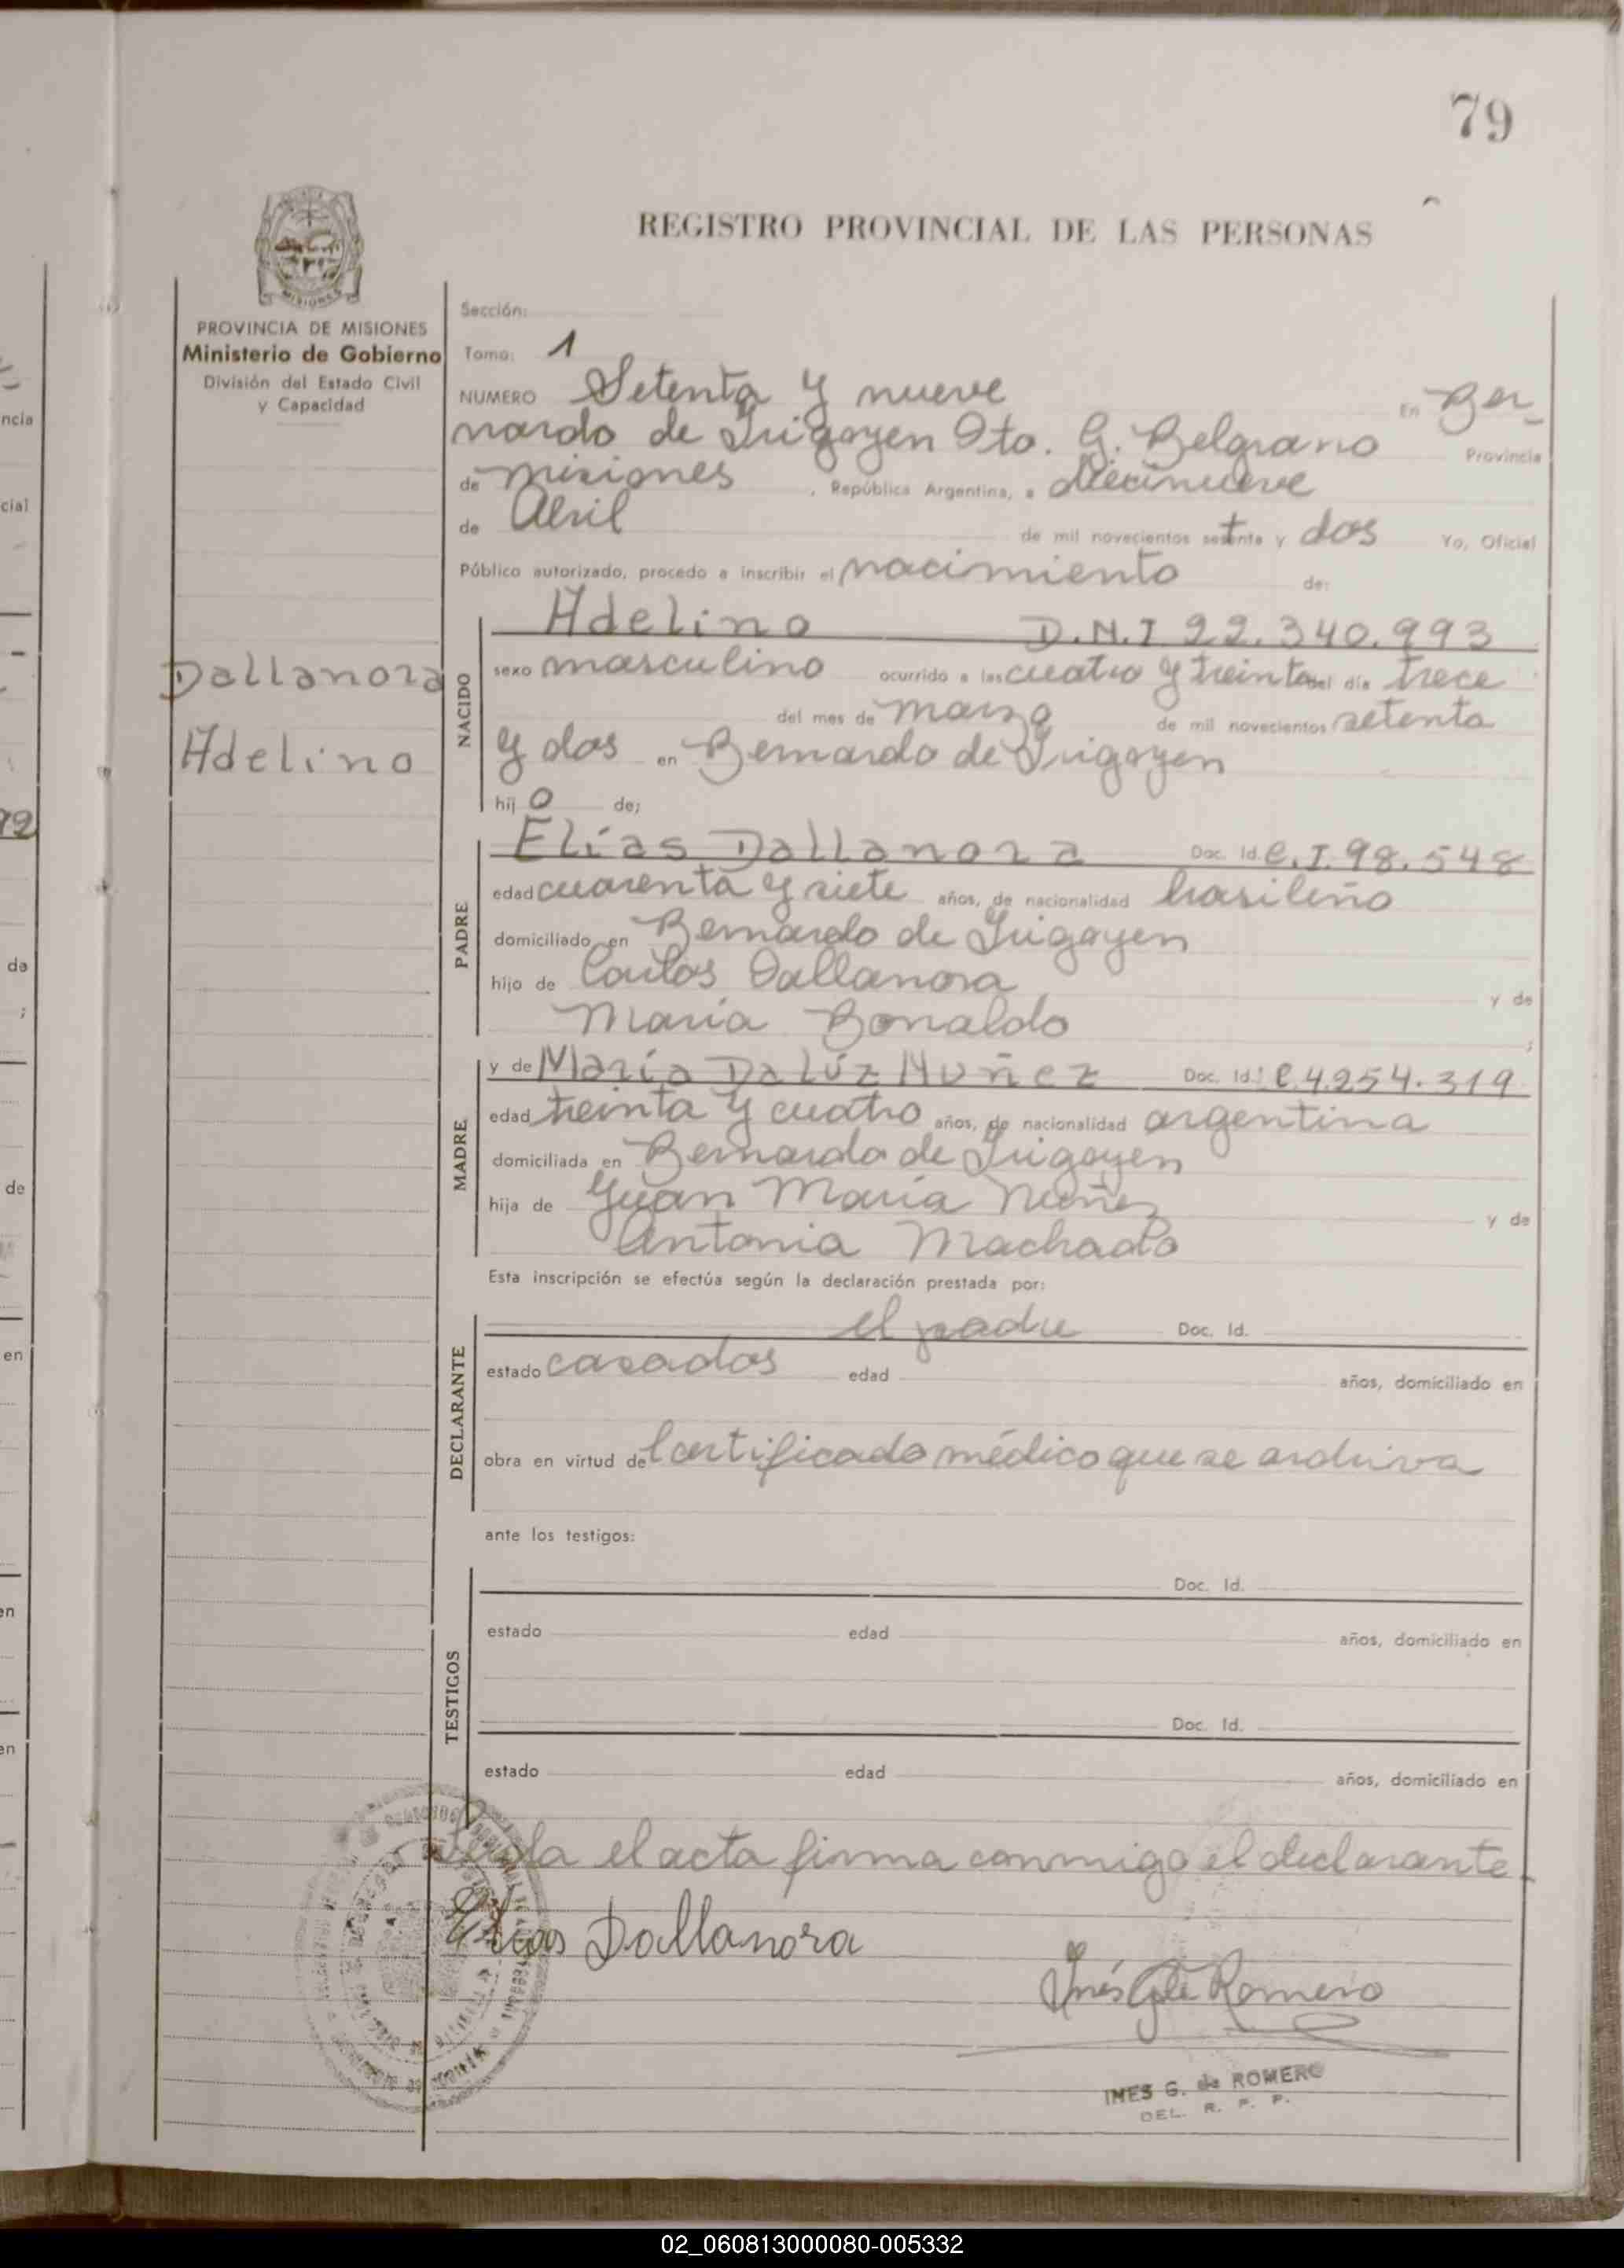 79
REGISTRO PROVINCIAL DE LAS PERSONAS
MISIONES
PROVINCIA DE MISIONES
Ministerio de Gobierno
División del Estado Civil
y Capacidad
Dallanora
Adelino
Sección:
Tomo: 1
NUMERO Setenta y nueve En Ber-
nardo de Irigoyen Dto. G. Belgrano Provincia
de Misiones, República Argentina, a diecinueve
de Abril de mil novecientos setenta y dos Yo, Oficial
Público autorizado, procedo a inscribir el nacimiento de:
NACIDO
Adelino D.N.I 22.340.993
sexo masculino ocurrido a las cuatro y treinta del día trece
del mes de marzo de mil novecientos setenta
y dos en Bernardo de Irigoyen
hij o de;
PADRE
Elías Dallanora Doc. Id. C.I. 98.548
edad cuarenta y siete años, de nacionalidad brasileño
domiciliado en Bernardo de Irigoyen
hijo de Carlos Dallanora y de
María Bonaldo ;
MADRE
y de María Da Lúz Nuñez Doc. Id.: C 4.254.319
edad treinta y cuatro años, de nacionalidad argentina
domiciliada en Bernardo de Irigoyen
hija de Juan María Nuñez y de
Antonia Machado
Esta inscripción se efectúa según la declaración prestada por:
DECLARANTE
el padre Doc. Id.
estado casados edad años, domiciliado en
obra en virtud de Certificado médico que se archiva
ante los testigos:
TESTIGOS
Doc. Id.
estado edad años, domiciliado en
Doc. Id.
estado edad años, domiciliado en
Leída el acta firma conmigo el declarante.
Elias Dallanora
Inés G de Romero
INES G. de ROMERO
DEL. R. P. P.
ncia
cial
72
da
;
de
en
en
en
02_060813000080-005332